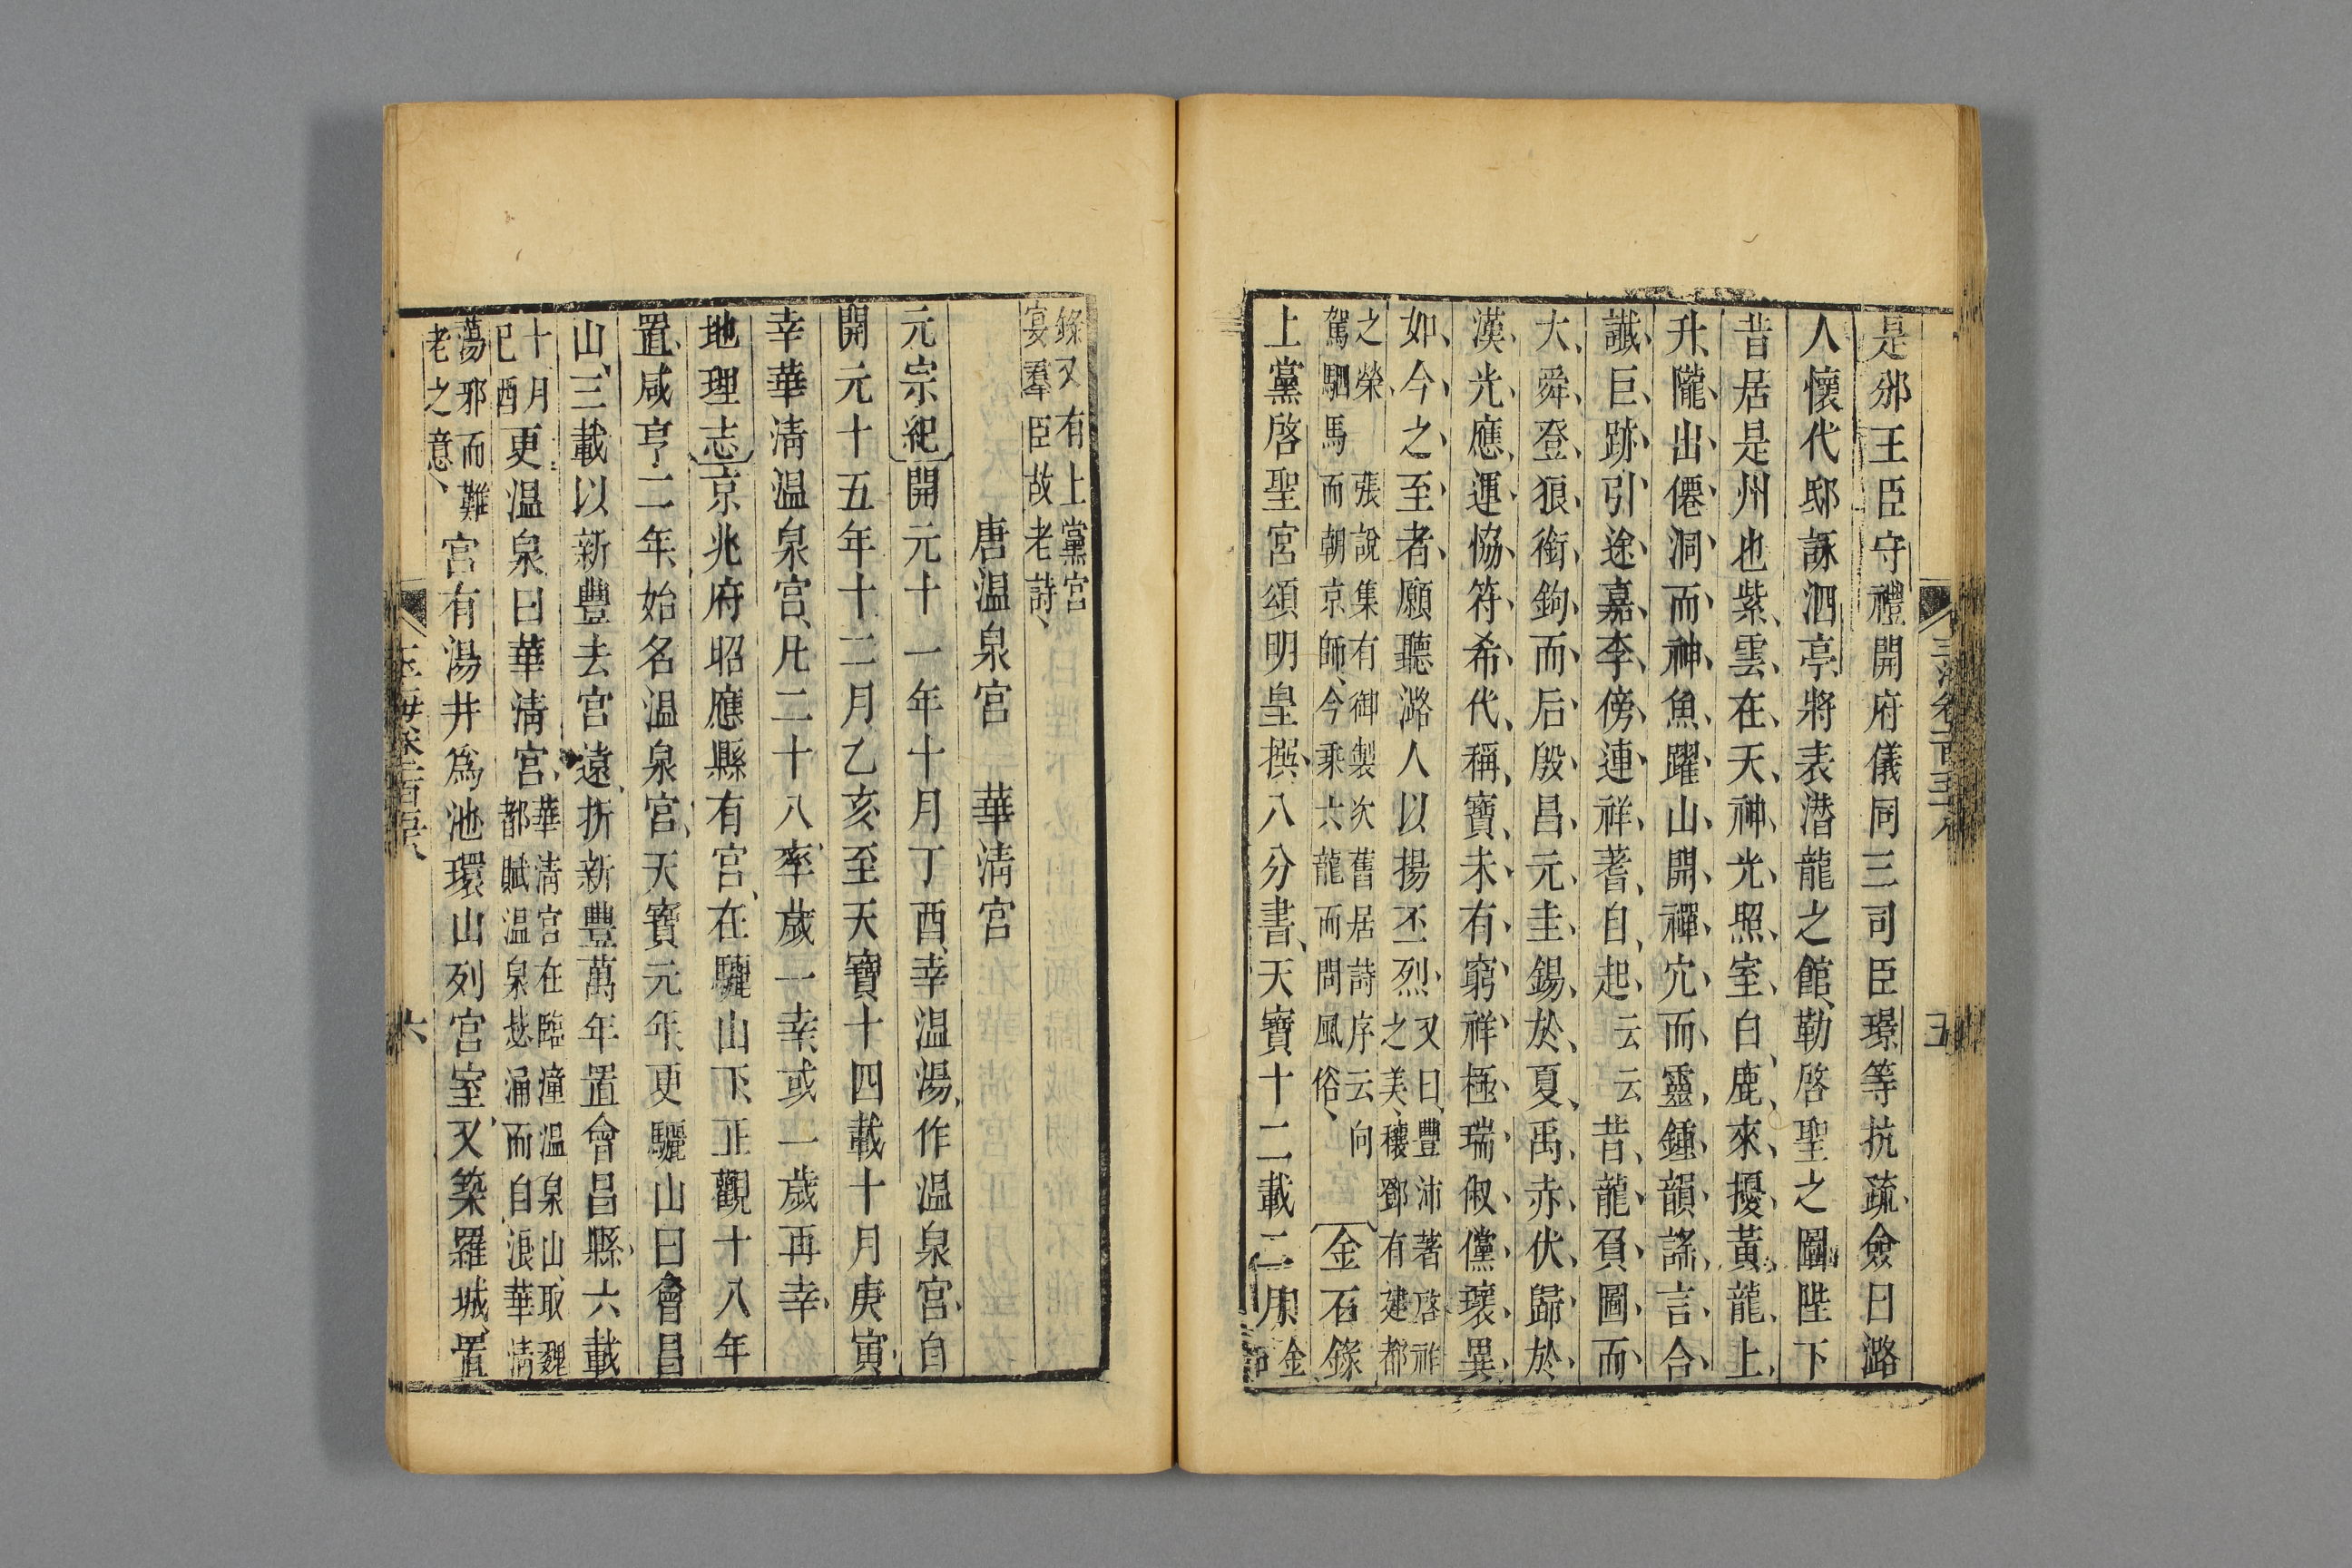 是邠王臣守禮開府儀同三司臣璟等抗疏僉曰潞
人懷代邸詠泗亭將表潛龍之館勒啓聖之圖陛下
昔居是州也紫雲在天神光照室白鹿來擾黃龍上
升隴出僊洞而神魚躍山開禪穴而靈鍾韻謠言合
讖巨跡引途嘉李傍連祥蓍自起云云昔龍負圖而
大舜登狼銜鉤而后殷昌元圭錫於夏禹赤伏歸於
漢光應運恊符希代稱寶未有窮祥極瑞俶儻瓌異
如今之至者願聽潞人以揚丕烈又曰豐沛著啓祚
之美穰鄧有建都
之榮張說集有御製次舊居詩序云向
駕駟馬而朝京師今乘六龍而問風俗金石錄
上黨啓聖宮頌明皇撰八分書天寶十二載二月金
玉海卷一百五十八
五
錄又有上黨宮
宴羣臣故老詩
唐温泉宮 華清宮
元宗紀開元十一年十月丁酉幸温湯作温泉宮自
開元十五年十二月乙亥至天寶十四載十月庚寅
幸華清温泉宮凡二十八率歲一幸或一歲再幸
地理志京兆府昭應縣有宮在驪山下正觀十八年
置咸亨二年始名温泉宮天寶元年更驪山曰會昌
山三載以新豐去宮遠折新豐萬年置會昌縣六載
十月
己酉更温泉曰華清宮華清宮在臨潼温泉山取魏
都賦温泉毖涌而自浪華清
蕩邪而難
老之意宮有湯井爲池環山列宮室又築羅城置
玉海卷一百五十八
六